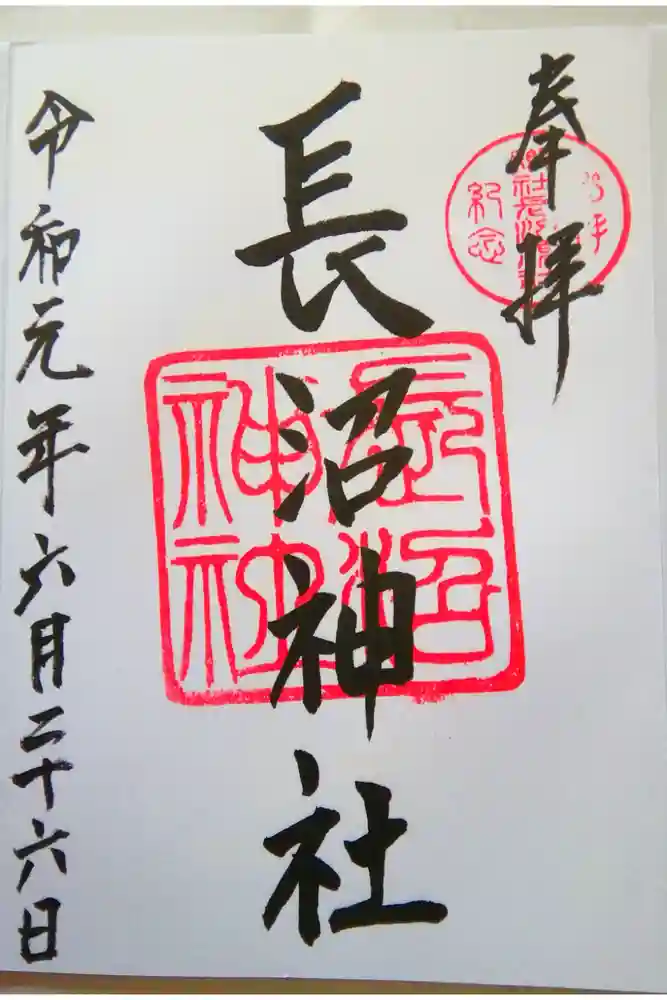 奉拝
紀念
長沼神社
長沼神社
令和元年六月二十六日